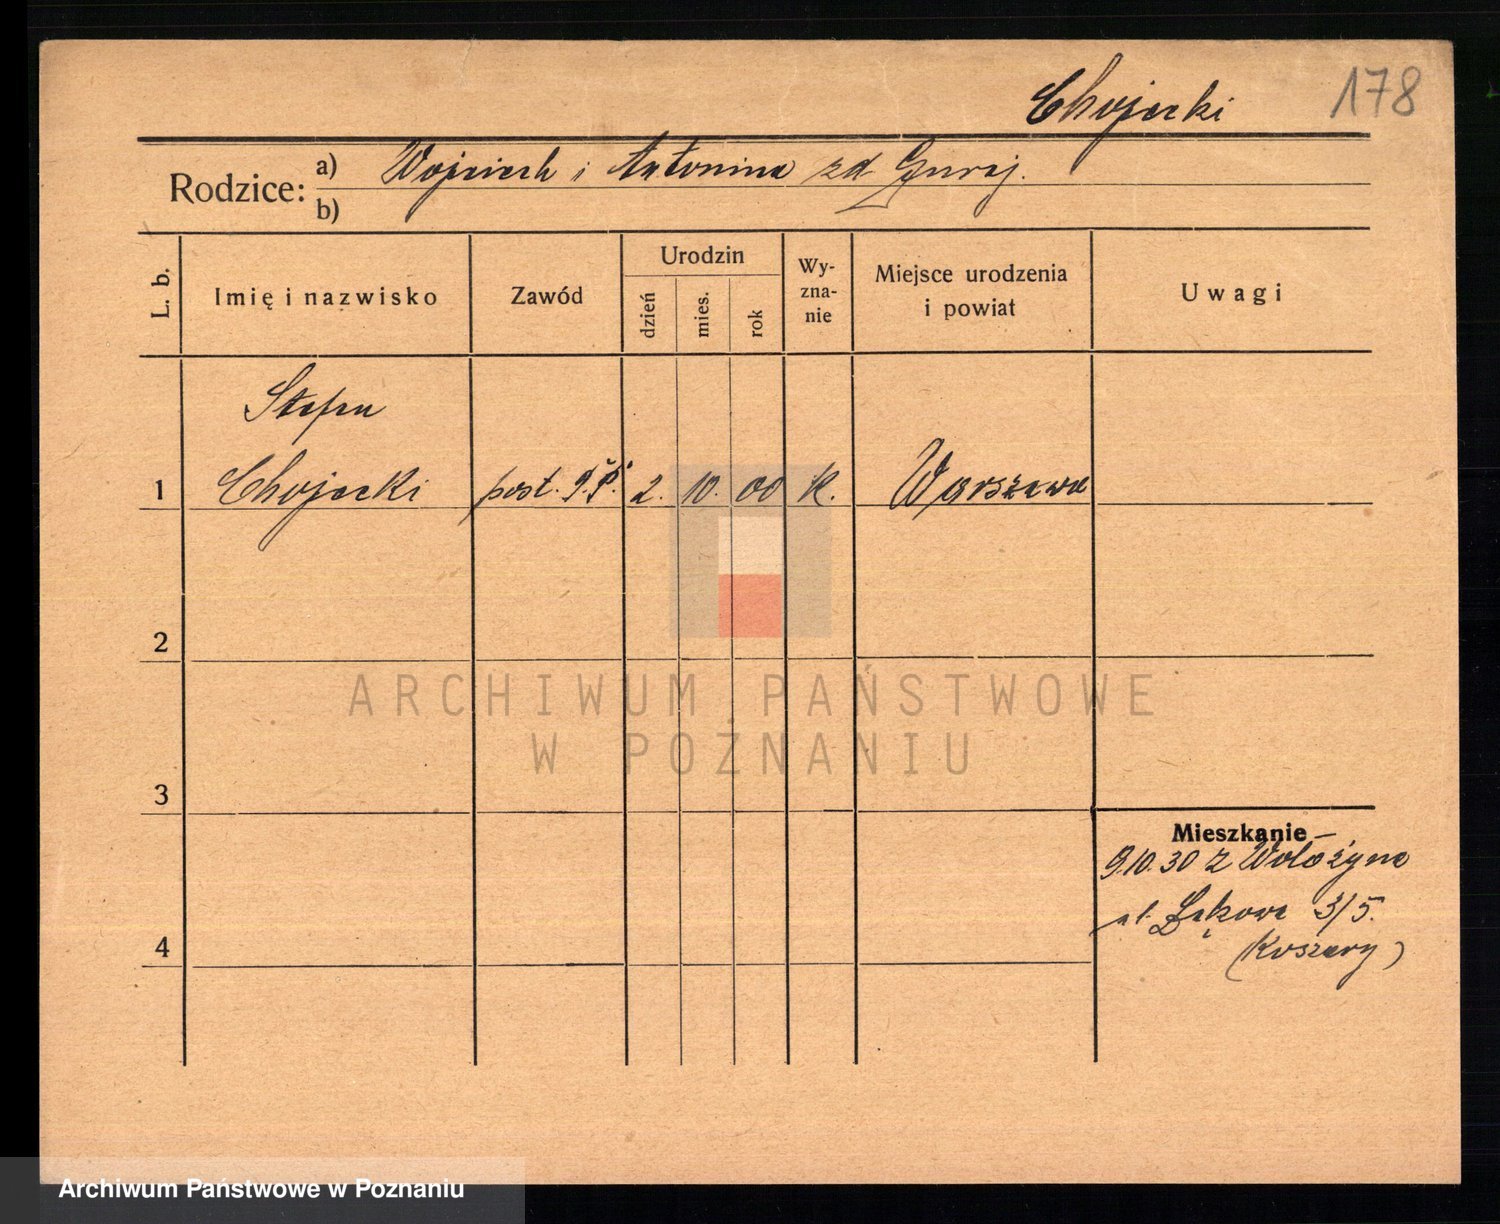 Chojecki 178
Rodzice: a) Wojciech i Antonina zd Guraj.
b)
L. b. Imię i nazwisko Zawód Urodzin dzień mies. rok Wy-zna-nie Miejsce urodzenia i powiat Uwagi
Stefan
1 Chojecki post. P.P. 2. 10. 00 k. Warszawa
2
ARCHIWUM PAŃSTWOWE
W POZNANIU
3
Mieszkanie
9.10.30 z Wołożyna
ul. Łąkowa 3/5.
4 (Koszary)
Archiwum Państwowe w Poznaniu